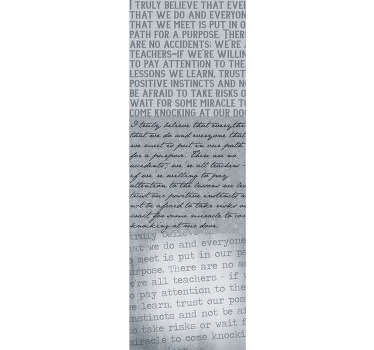 I TRULY BELIEVE THAT EVE
THAT WE DO AND EVERYON
THAT WE MEET IS PUT IN O
PATH FOR A PURPOSE. THER
ARE NO ACCIDENTS: WE'RE A
TEACHERS—IF WE'RE WILLIN
TO PAY ATTENTION TO THE
LESSONS WE LEARN, TRUST
POSITIVE INSTINCTS AND NO
BE AFRAID TO TAKE RISKS O
WAIT FOR SOME MIRACLE TO
COME KNOCKING AT OUR DO
I truly believe that everythi
that we do and everyone that
we meet is put in our path
for a purpose. There are no
accidents; we're all teachers -
if we're willing to pay
attention to the lessons we lea
trust our positive instincts a
not be afraid to take risks o
wait for some miracle to com
knocking at our door.
truly believe
at we do and everyone
meet is put in our pa
rpose. There are no a
e're all teachers - if
o pay attention to the
e learn, trust our pos
nstincts and not be af
o take risks or wait f
iracle to come knocki